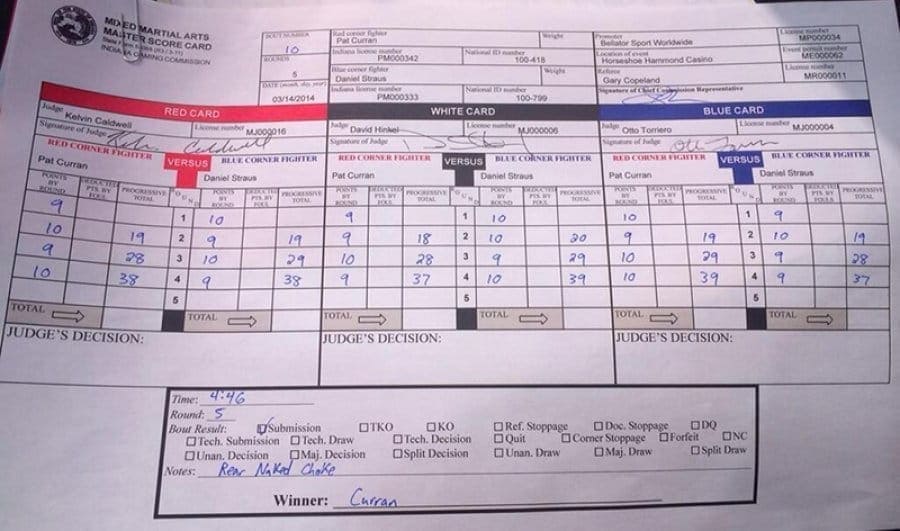 MIXED MARTIAL ARTS
MASTER SCORE CARD
INDIANA GAMING COMMISSION
BOUT NUMBER
10
ROUNDS
5
DATE (month, day, year)
03/14/2014
Red corner fighter Weight
Pat Curran
Indiana license number National ID number
PM000342 100-418
Blue corner fighter Weight
Daniel Straus
Indiana license number National ID number
PM000333 100-799
Promoter License number
Bellator Sport Worldwide MP000034
Location of event Event permit number
Horseshoe Hammond Casino ME000062
Referee License number
Gary Copeland MR000011
Signature of Chief Commission Representative
RED CARD
Judge Kelvin Caldwell License number MJ000016
Signature of Judge Kelvin Caldwell
RED CORNER FIGHTER VERSUS BLUE CORNER FIGHTER
Pat Curran Daniel Straus
POINTS BY ROUND DEDUCTED PTS. BY FOUL PROGRESSIVE TOTAL ROUND POINTS BY ROUND DEDUCTED PTS. BY FOUL PROGRESSIVE TOTAL
9 1 10
10 19 2 9 19
9 28 3 10 29
10 38 4 9 38
5
TOTAL TOTAL
JUDGE'S DECISION:
WHITE CARD
Judge David Hinkel License number MJ000006
Signature of Judge
RED CORNER FIGHTER VERSUS BLUE CORNER FIGHTER
Pat Curran Daniel Straus
POINTS BY ROUND DEDUCTED PTS. BY FOUL PROGRESSIVE TOTAL ROUND POINTS BY ROUND DEDUCTED PTS. BY FOUL PROGRESSIVE TOTAL
9 1 10
9 18 2 10 20
10 28 3 9 29
9 37 4 10 39
5
TOTAL TOTAL
JUDGE'S DECISION:
BLUE CARD
Judge Otto Torriero License number MJ000004
Signature of Judge
RED CORNER FIGHTER VERSUS BLUE CORNER FIGHTER
Pat Curran Daniel Straus
POINTS BY ROUND DEDUCTED PTS. BY FOUL PROGRESSIVE TOTAL ROUND POINTS BY ROUND DEDUCTED PTS. BY FOULS PROGRESSIVE TOTAL
10 1 9
9 19 2 10 19
10 29 3 9 28
10 39 4 9 37
5
TOTAL TOTAL
JUDGE'S DECISION:
Time: 4:46
Round: 5
Bout Result: Submission TKO KO Ref. Stoppage Doc. Stoppage DQ
Tech. Submission Tech. Draw Tech. Decision Quit Corner Stoppage Forfeit NC
Unan. Decision Maj. Decision Split Decision Unan. Draw Maj. Draw Split Draw
Notes: Rear Naked Choke
Winner: Curran